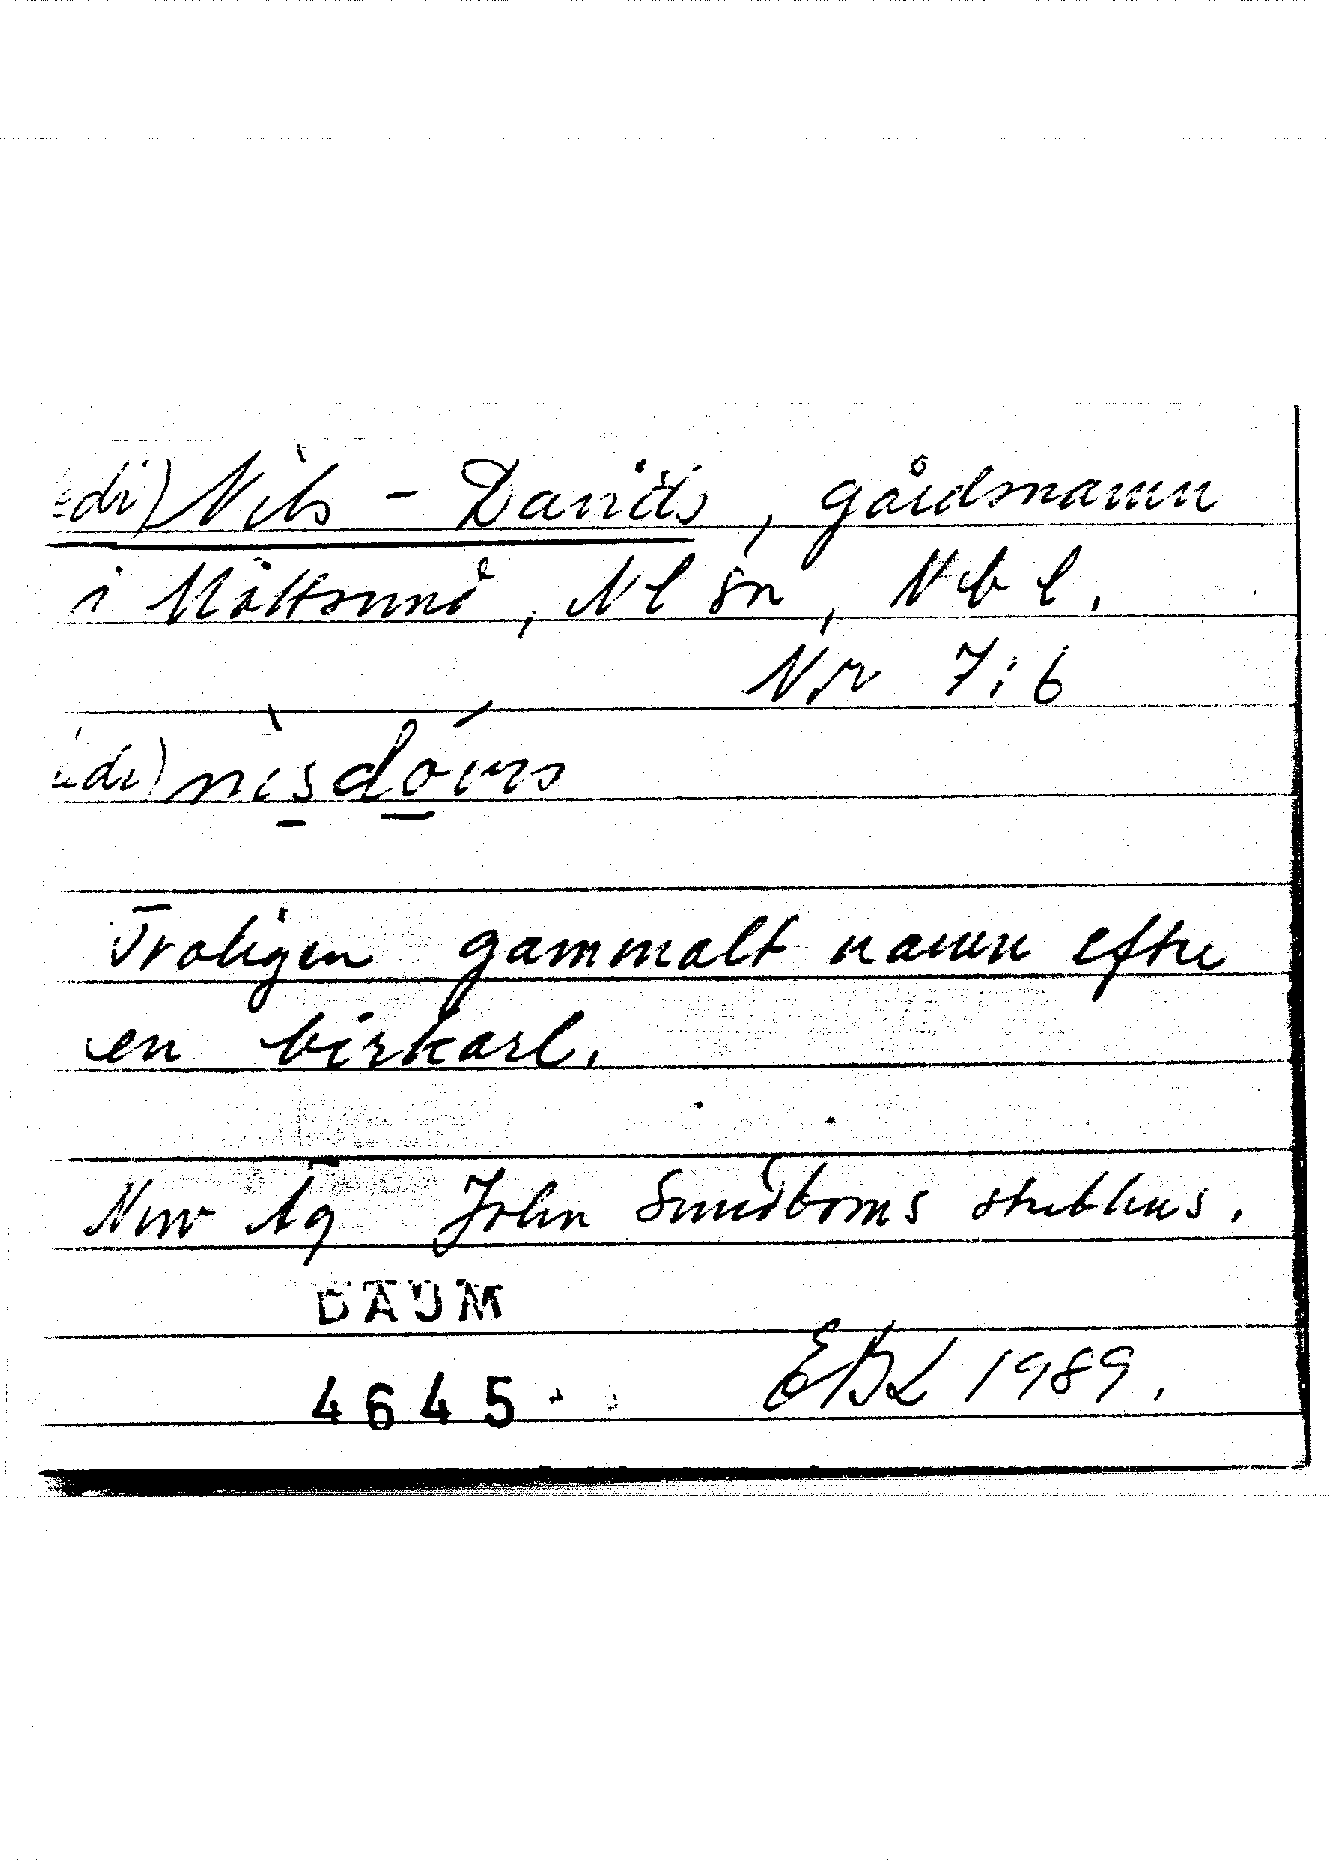 edi) Nils - Davids, gårdsnamn
i Måttsund, Nl sn, Nb l.
Nr 7:6
nisdóvrs
Troligen gammalt namn efter
en birkarl.
Nuv äg John Sundboms sterbhus.
DAUM
4645
EBL 1989.